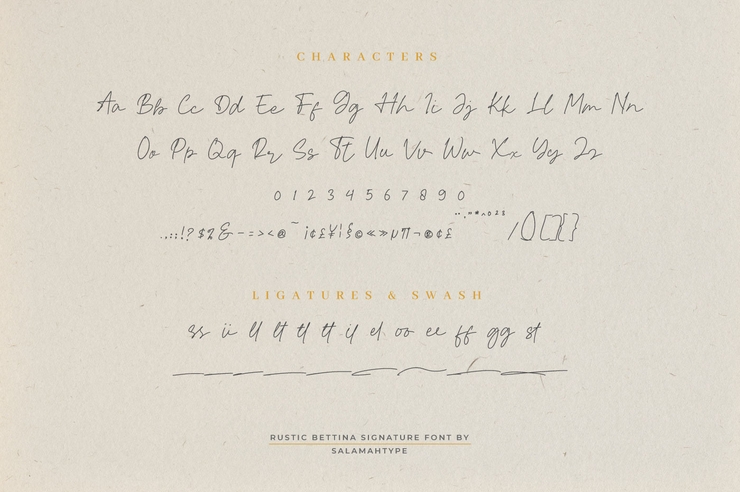 CHARACTERS
Aa Bb Cc Dd Ee Ff Gg Hh Ii Jj Kk Ll Mm Nn
Oo Pp Qq Rr Ss Tt Uu Vv Ww Xx Yy Zz
0 1 2 3 4 5 6 7 8 9 0
.,:;!?$%&-=><@~¡¢£¥¦§©«»µ¶¬®¢£ /()[]{}
LIGATURES & SWASH
ss ii ll lt tl tt il el oo ee ff gg st
RUSTIC BETTINA SIGNATURE FONT BY
SALAMAHTYPE